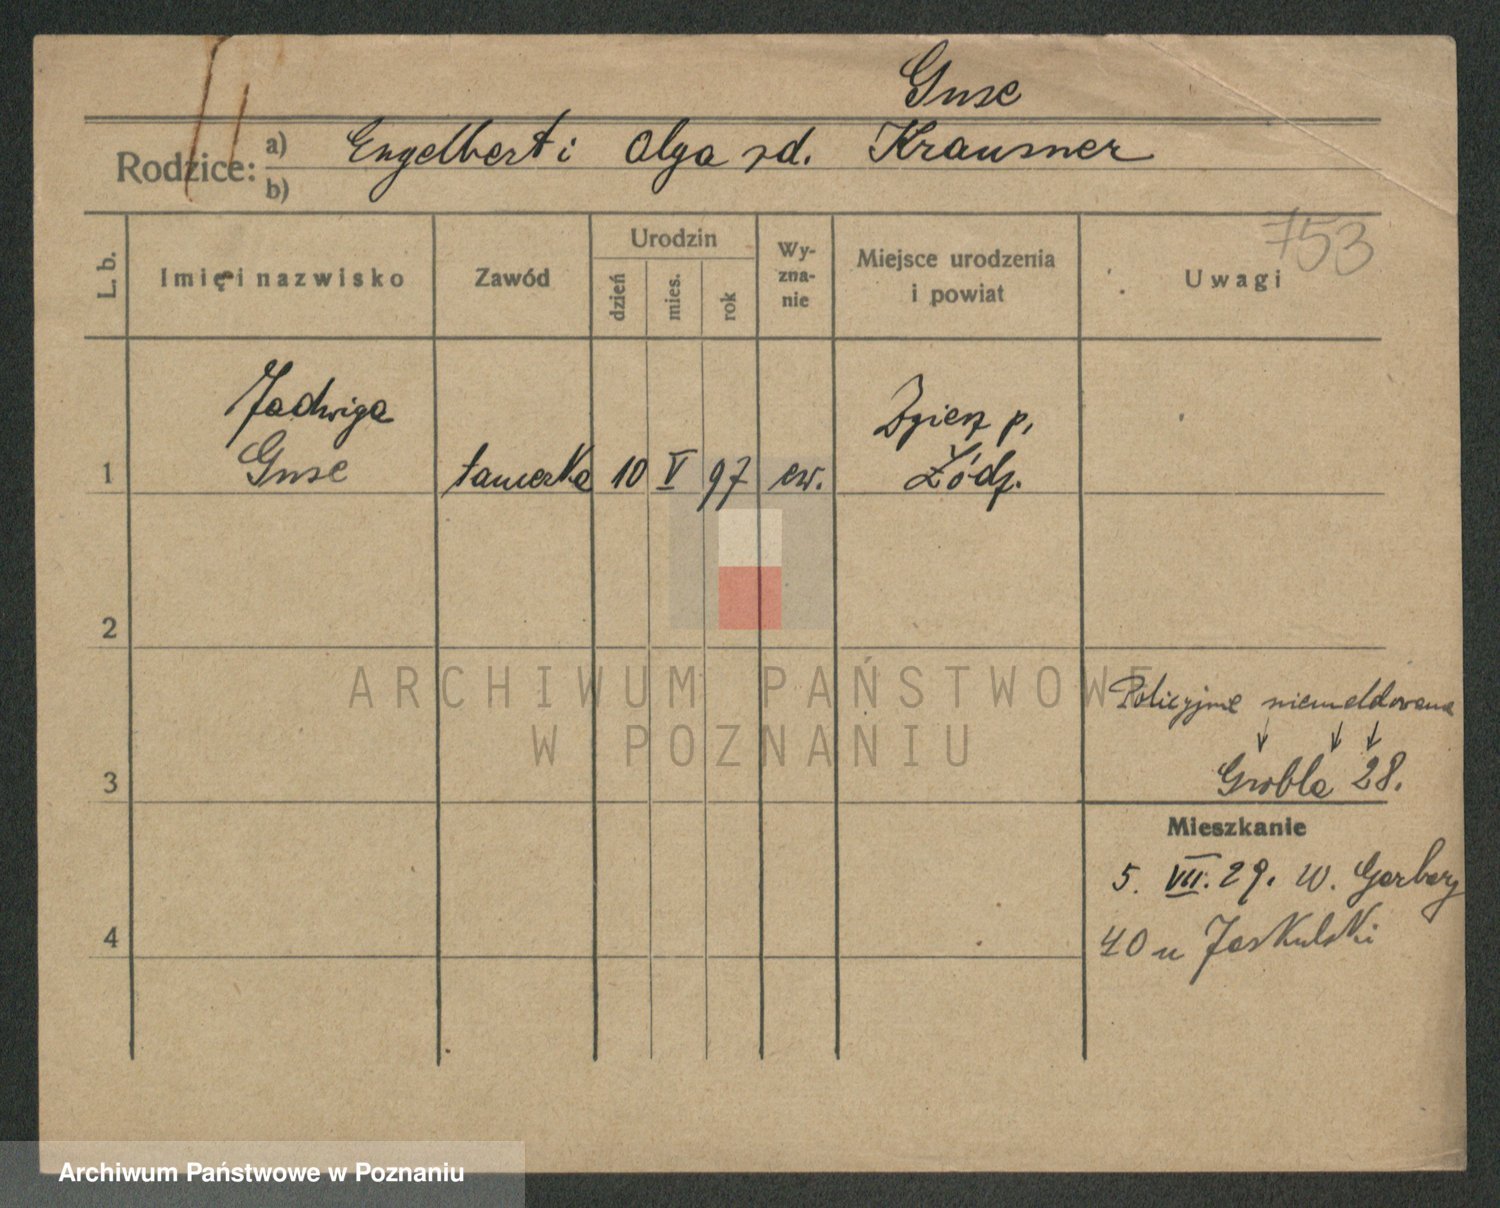 Guse
Rodzice: a) Engelbert i Olga zd. Krausner
b)
753
L. b.
Imię i nazwisko
Zawód
Urodzin
dzień
mies.
rok
Wy-
zna-
nie
Miejsce urodzenia
i powiat
Uwagi
Jadwiga
Guse
1
tancerka
10
V
97
ew.
Zgierz p.
Łódz.
2
3
Policyjnie niemeldowana
Grobla 28.
Mieszkanie
5. VII. 29. W. Garbary
40 u Jaskulski
4
ARCHIWUM PAŃSTWOWE
W POZNANIU
Archiwum Państwowe w Poznaniu